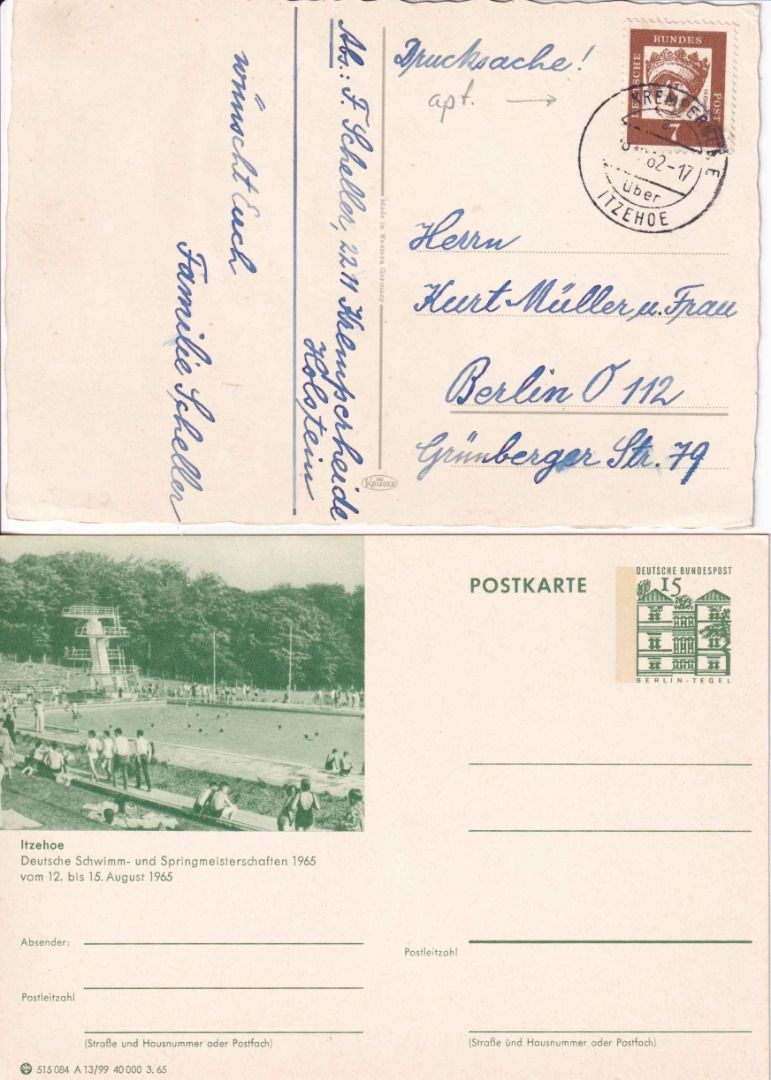 wünscht Euch
Familie Scheller
Abs.: F. Scheller, 2211 Kremperheide
Holstein
Drucksache!
apt.
DEUTSCHE BUNDES POST
7
62-17
über
ITZEHOE
Made in Western Germany
Herrn
Kurt Müller u. Frau
Berlin O 112
Grünberger Str. 79
KRÜGER
POSTKARTE
DEUTSCHE BUNDESPOST
15
BERLIN-TEGEL
Itzehoe
Deutsche Schwimm- und Springmeisterschaften 1965
vom 12. bis 15. August 1965
Absender:
Postleitzahl
(Straße und Hausnummer oder Postfach)
Postleitzahl
(Straße und Hausnummer oder Postfach)
515 084 A 13/99 40 000 3. 65